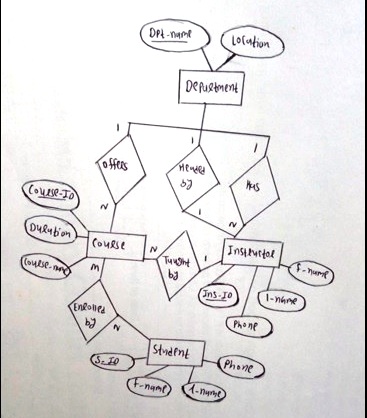 Dpt-name
Location
Department
1
1
1
Offers
Headed
by
Has
N
1
N
Course-ID
Duration
Course-name
Course
N
Taught
by
1
Instructor
F-name
l-name
Phone
Ins-ID
M
Enrolled
by
N
Student
S-ID
F-name
l-name
Phone